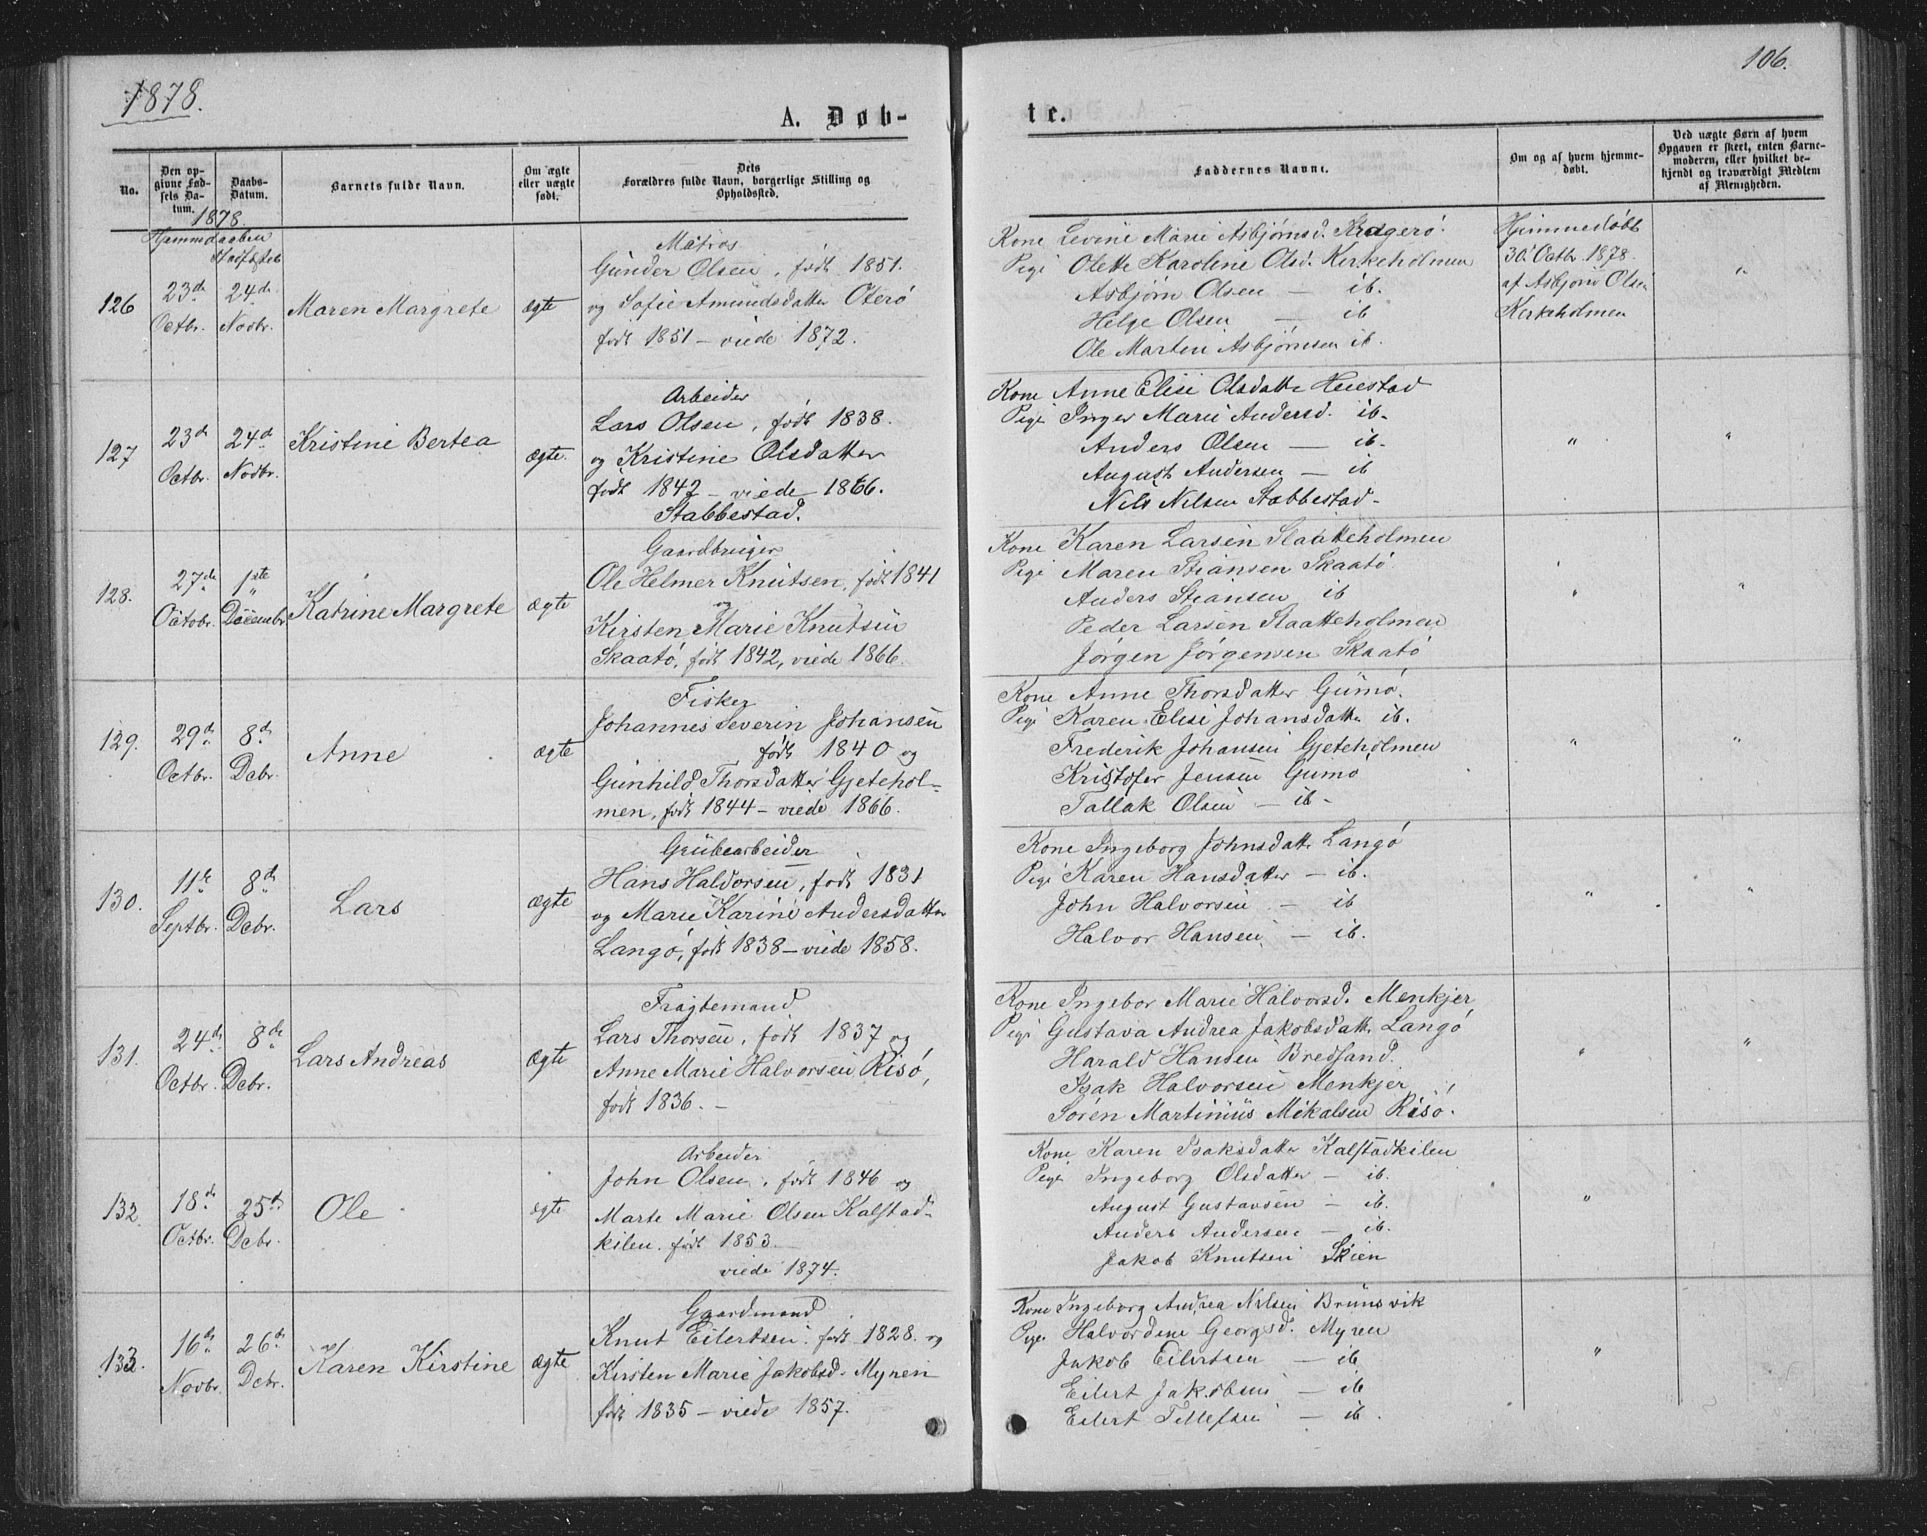 1878.
106.
A. Døb-
te.
No.
Den op-
givne Fød-
sels Da-
tum.
Daabs-
Datum.
Barnets fulde Navn.
Om ægte
eller uægte
født.
Dets
Forældres fulde Navn, borgerlige Stilling og
Opholdssted.
Faddernes Navne.
Om og af hvem hjemme-
døbt.
Ved uægte Børn af hvem
Opgaven er skeet, enten Barne-
moderen, eller hvilket be-
kjendt og troværdigt Medlem
af Menigheden.
1878
Hjemmedaaben
Stadfæstet
126
23de
Octbr.
24de
Novbr.
Maren Margrete
ægte
Matros
Gunder Olsen, født 1851.
og Sofie Amundsdatter Oterö
født 1851 – viede 1872.
Kone Levine Marie Asbjørnsd. Kragerö.
Pige Olette Karoline Olsd. Kirkeholmen
Asbjørn Olsen — ib.
Helge Olsen — ib
Ole Martin Asbjørnsen ib.
Hjemmedöbt
30. Octbr. 1878
af Asbjørn Olsen
Kirkeholmen
"
127
23de
Octbr.
24de
Novbr.
Kristine Bertea
ægte.
Arbeider
Lars Olsen, født 1838.
og Kristine Olsdatter
født 1842 – viede 1866.
Stabbestad.
Kone Anne Elise Olsdatter Heiestad
Pige Inger Marie Andersd. ib.
Anders Olsen — ib.
August Andersen — ib
Nils Nilsen Stabbestad.
"
"
128.
27de
Octobr.
1ste
Decembr.
Katrine Margrete
ægte
Gaardbruger
Ole Helmer Knutsen, født 1841
og
Kirsten Marie Knutsen
Skaatö, født 1842, viede 1866.
Kone Karen Larsen Slaatteholmen
Pige Maren Stiansen Skaatö
Anders Stiansen ib
Peder Larsen Slaatteholmen
Jørgen Jørgensen Skaatö
"
"
129.
29de
Octbr.
8de
Dcbr.
Anne
ægte
Fisker
Johannes Severin Johansen
født 1840 og
Gunhild Thorsdatter Gjetehol-
men, født 1844 – viede 1866.
Kone Anne Thorsdatter Gumö.
Pige Karen Elise Johansdatter ib.
Frederik Johansen Gjeteholmen
Kristofer Jensen Gumö
Tallak Olsen — ib.
"
"
130.
11te
Septbr.
8de
Dcbr.
Lars
ægte
Grubearbeider
Hans Haldorsen, født 1831
og Marie Karine Andersdatter
Langö, født 1838 – viede 1858.
Kone Ingeborg Johnsdatter Langö
Pige Karen Hansdatter — ib.
John Halvorsen — ib
Halvor Hansen — ib.
"
"
131.
24de
Octbr.
8de
Dcbr.
Lars Andreas
ægte
Fragtemand
Lars Thorsen, født 1837 og
Anne Marie Halvorsen Risö,
født 1836. –
Kone Ingebor Marie Halvorsd. Menkjer
Pige Gustava Andrea Jakobsdatter Langö
Harald Hansen Bredsand.
Isak Halvorsen Menkjer
Sören Martinius Mikalsen Risö.
"
"
132
18de
Octbr.
25de
Dcbr.
Ole
ægte
Arbeider
John Olsen, født 1846 og
Marte Marie Olsen Kalstad-
kilen. født 1853.
viede 1874.
Kone Karen Isaksdatter Kalstadkilen
Pige Ingeborg Olsdatter — ib.
August Gustavsen — ib.
Anders Andersen — ib.
Jakob Knutsen Skien
"
133.
16de
Novbr.
26de
Dcbr.
Karen Kirstine
ægte
Gaardmand
Knut Eilertsen. født 1828. og
Kirsten Marie Jakobsd. Myren
født 1835 – viede 1857.
Kone Ingeborg Andrea Nilsen Brunsvik
Pige Halvordine Georgsd. Myren
Jakob Eilertsen — ib
Eilert Jakobsen — ib
Eilert Tellefsen — ib.
"